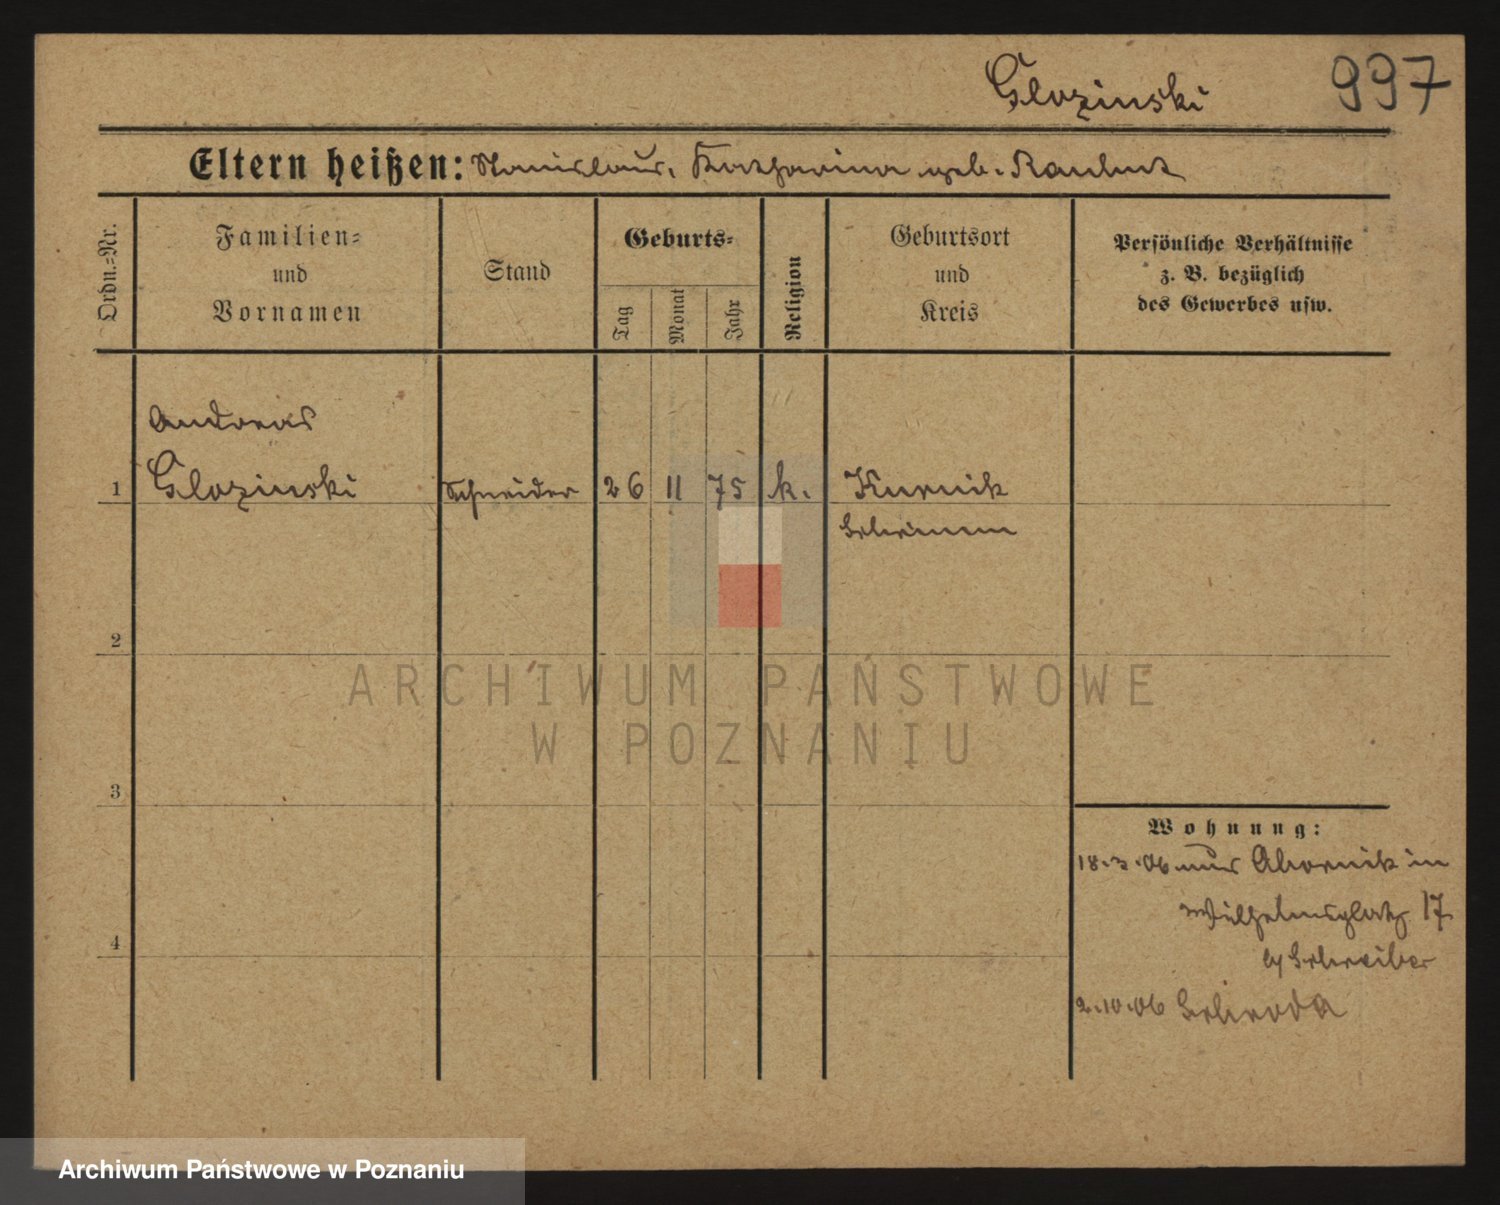 Glozinski
997
Eltern heißen: Stanislaus, Katharina geb. Raulut
Ordn.-Nr.
Familien-
und
Vornamen
Stand
Geburts-
Tag
Monat
Jahr
Religion
Geburtsort
und
Kreis
Persönliche Verhältnisse
z. B. bezüglich
des Gewerbes usw.
Andreas
1 Glozinski Schneider 26 11 75 k. Kurnik
Schrimm
2
ARCHIWUM PAŃSTWOWE
W POZNANIU
3
Wohnung:
18.3.06 aus
Wilhelmsplatz 17
Schreiber
4
2.10.06 Schroda
Archiwum Państwowe w Poznaniu